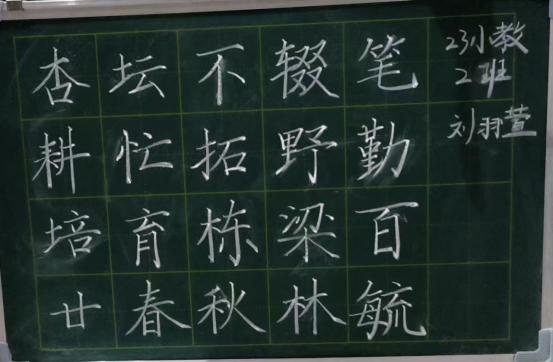 杏坛不辍笔
耕忙拓野勤
培育栋梁百
廿春秋林毓
23小教
2班
刘羽萱